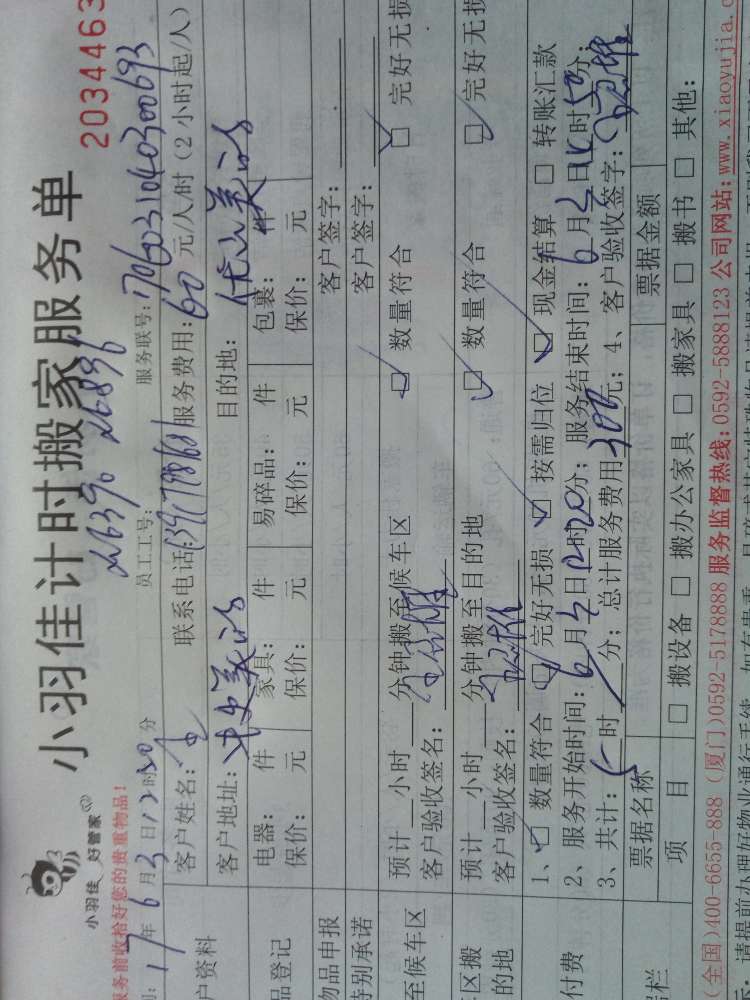 小羽佳计时搬家服务单
2034463
小羽佳 好管家
服务前收拾好您的贵重物品!
17年6月3日12时20分 员工工号: 服务联号:1706031040300693
户资料 客户姓名: 联系电话: 服务费用:60元/人/时(2小时起/人)
客户地址: 目的地:
品登记 电器: 件 家具: 件 易碎品: 件 包裹: 件
保价: 元 保价: 元 保价: 元 保价: 元
物品申报 客户签字:
特别承诺 客户签字:
至候车区 预计__小时__分钟搬至候车区 □ 数量符合 □ 完好无损
客户验收签名:
区搬 预计__小时__分钟搬至目的地 □ 数量符合 □ 完好无损
的地 客户验收签名:
付费 1、□ 数量符合 □ 完好无损 □ 按需归位 □ 现金结算 □ 转账汇款
2、服务开始时间:6月3日12时20分; 服务结束时间:6月3日 时50分;
3、共计:5时 分; 总计服务费用300元; 4、客户验收签字:
票据名称 票据金额
栏 项 目 □ 搬设备 □ 搬办公家具 □ 搬家具 □ 搬书 □ 其他:
(全国)400-6655-888 (厦门)0592-5178888 服务监督热线:0592-5888123 公司网站:www.xiaoyujia.c